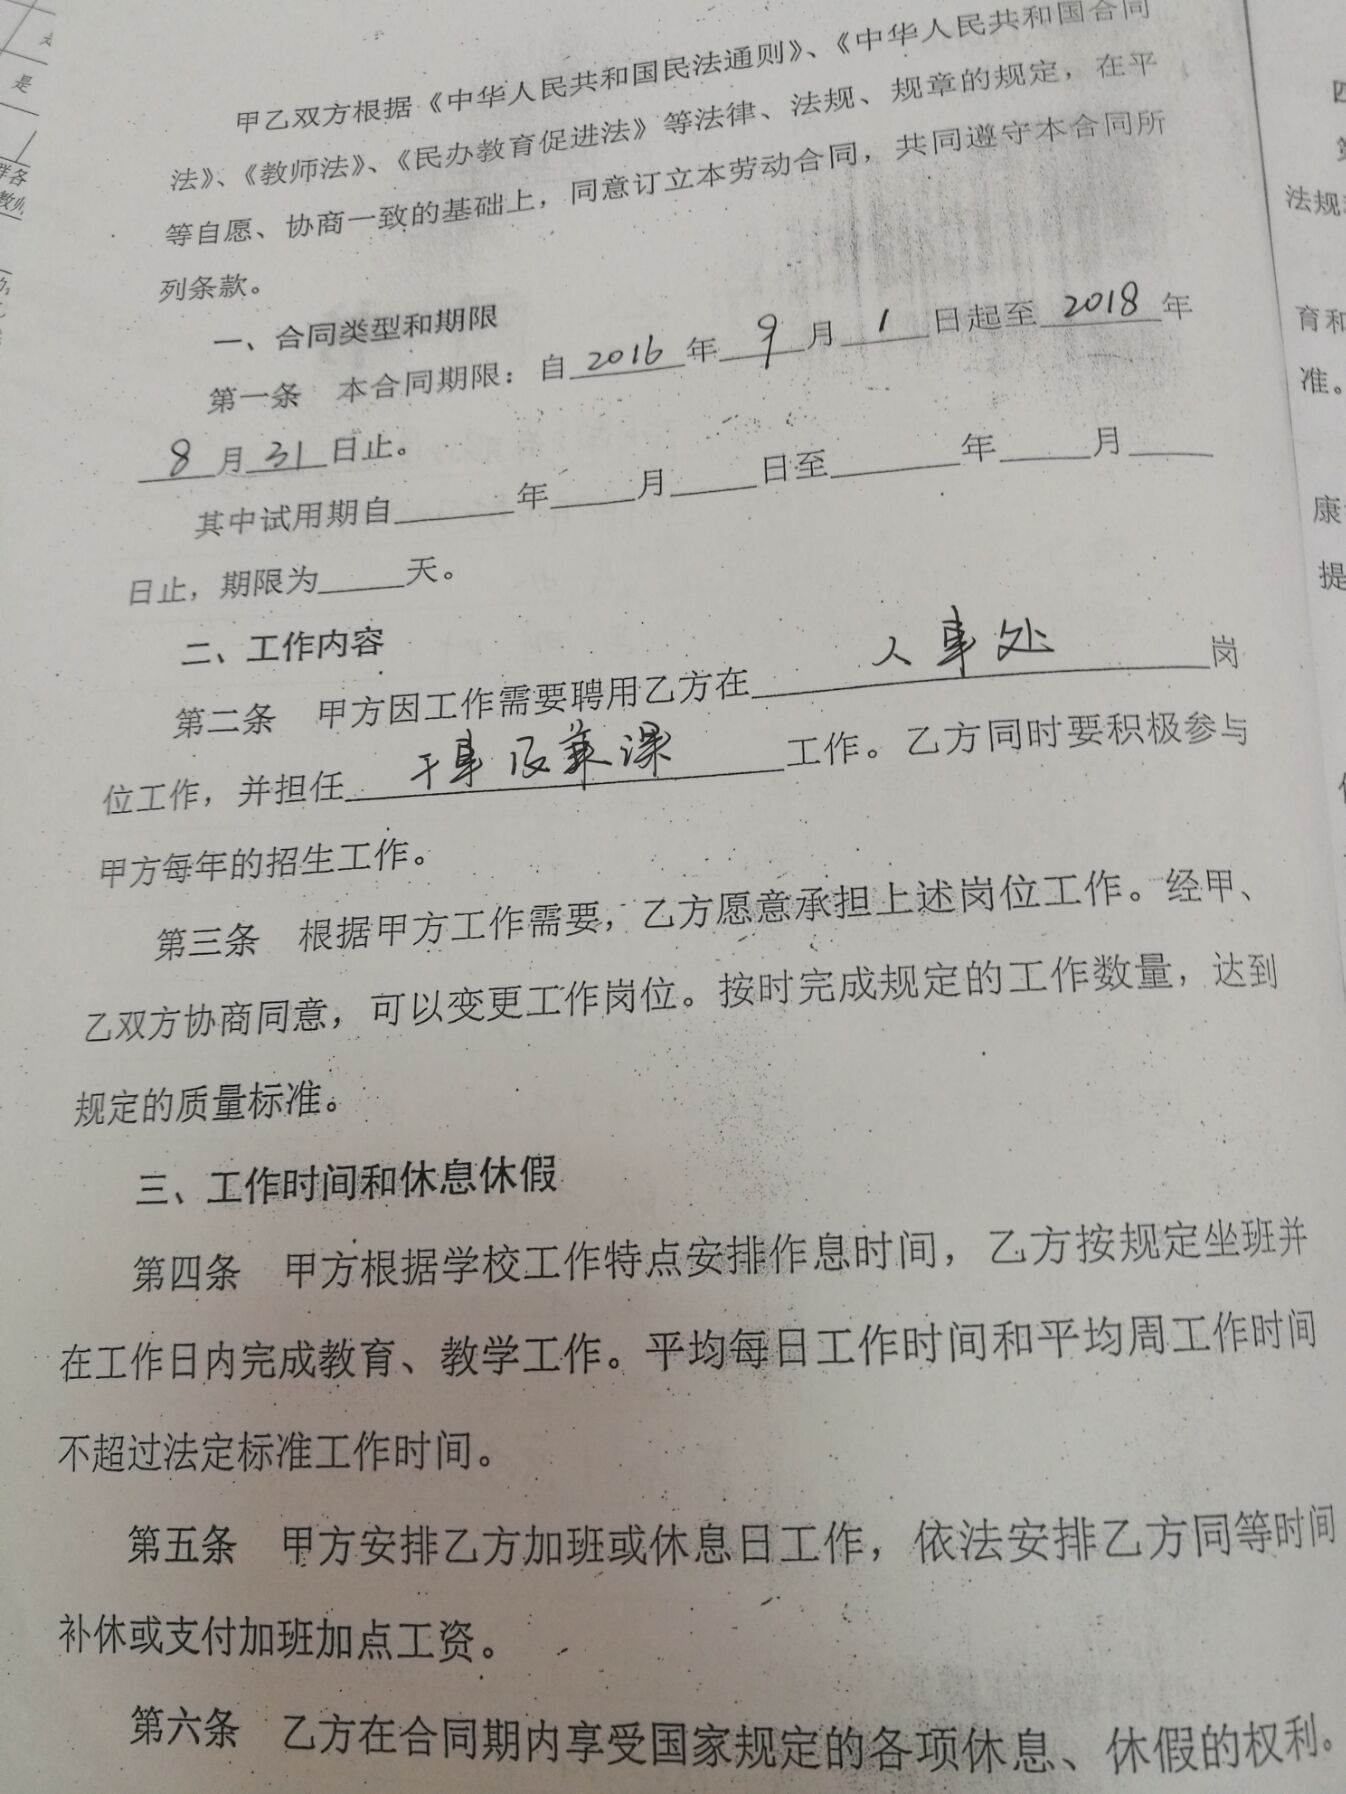 甲乙双方根据《中华人民共和国民法通则》、《中华人民共和国合同
法》、《教师法》、《民办教育促进法》等法律、法规、规章的规定，在平
等自愿、协商一致的基础上，同意订立本劳动合同，共同遵守本合同所
列条款。
一、合同类型和期限
第一条 本合同期限：自2016年9月1日起至2018年
8月31日止。
其中试用期自____年____月____日至____年____月____
日止，期限为____天。
二、工作内容
第二条 甲方因工作需要聘用乙方在人事处岗
位工作，并担任干事及兼课工作。乙方同时要积极参与
甲方每年的招生工作。
第三条 根据甲方工作需要，乙方愿意承担上述岗位工作。经甲、
乙双方协商同意，可以变更工作岗位。按时完成规定的工作数量，达到
规定的质量标准。
三、工作时间和休息休假
第四条 甲方根据学校工作特点安排作息时间，乙方按规定坐班并
在工作日内完成教育、教学工作。平均每日工作时间和平均周工作时间
不超过法定标准工作时间。
第五条 甲方安排乙方加班或休息日工作，依法安排乙方同等时间
补休或支付加班加点工资。
第六条 乙方在合同期内享受国家规定的各项休息、休假的权利。
是
法规
育和
准。
康
提